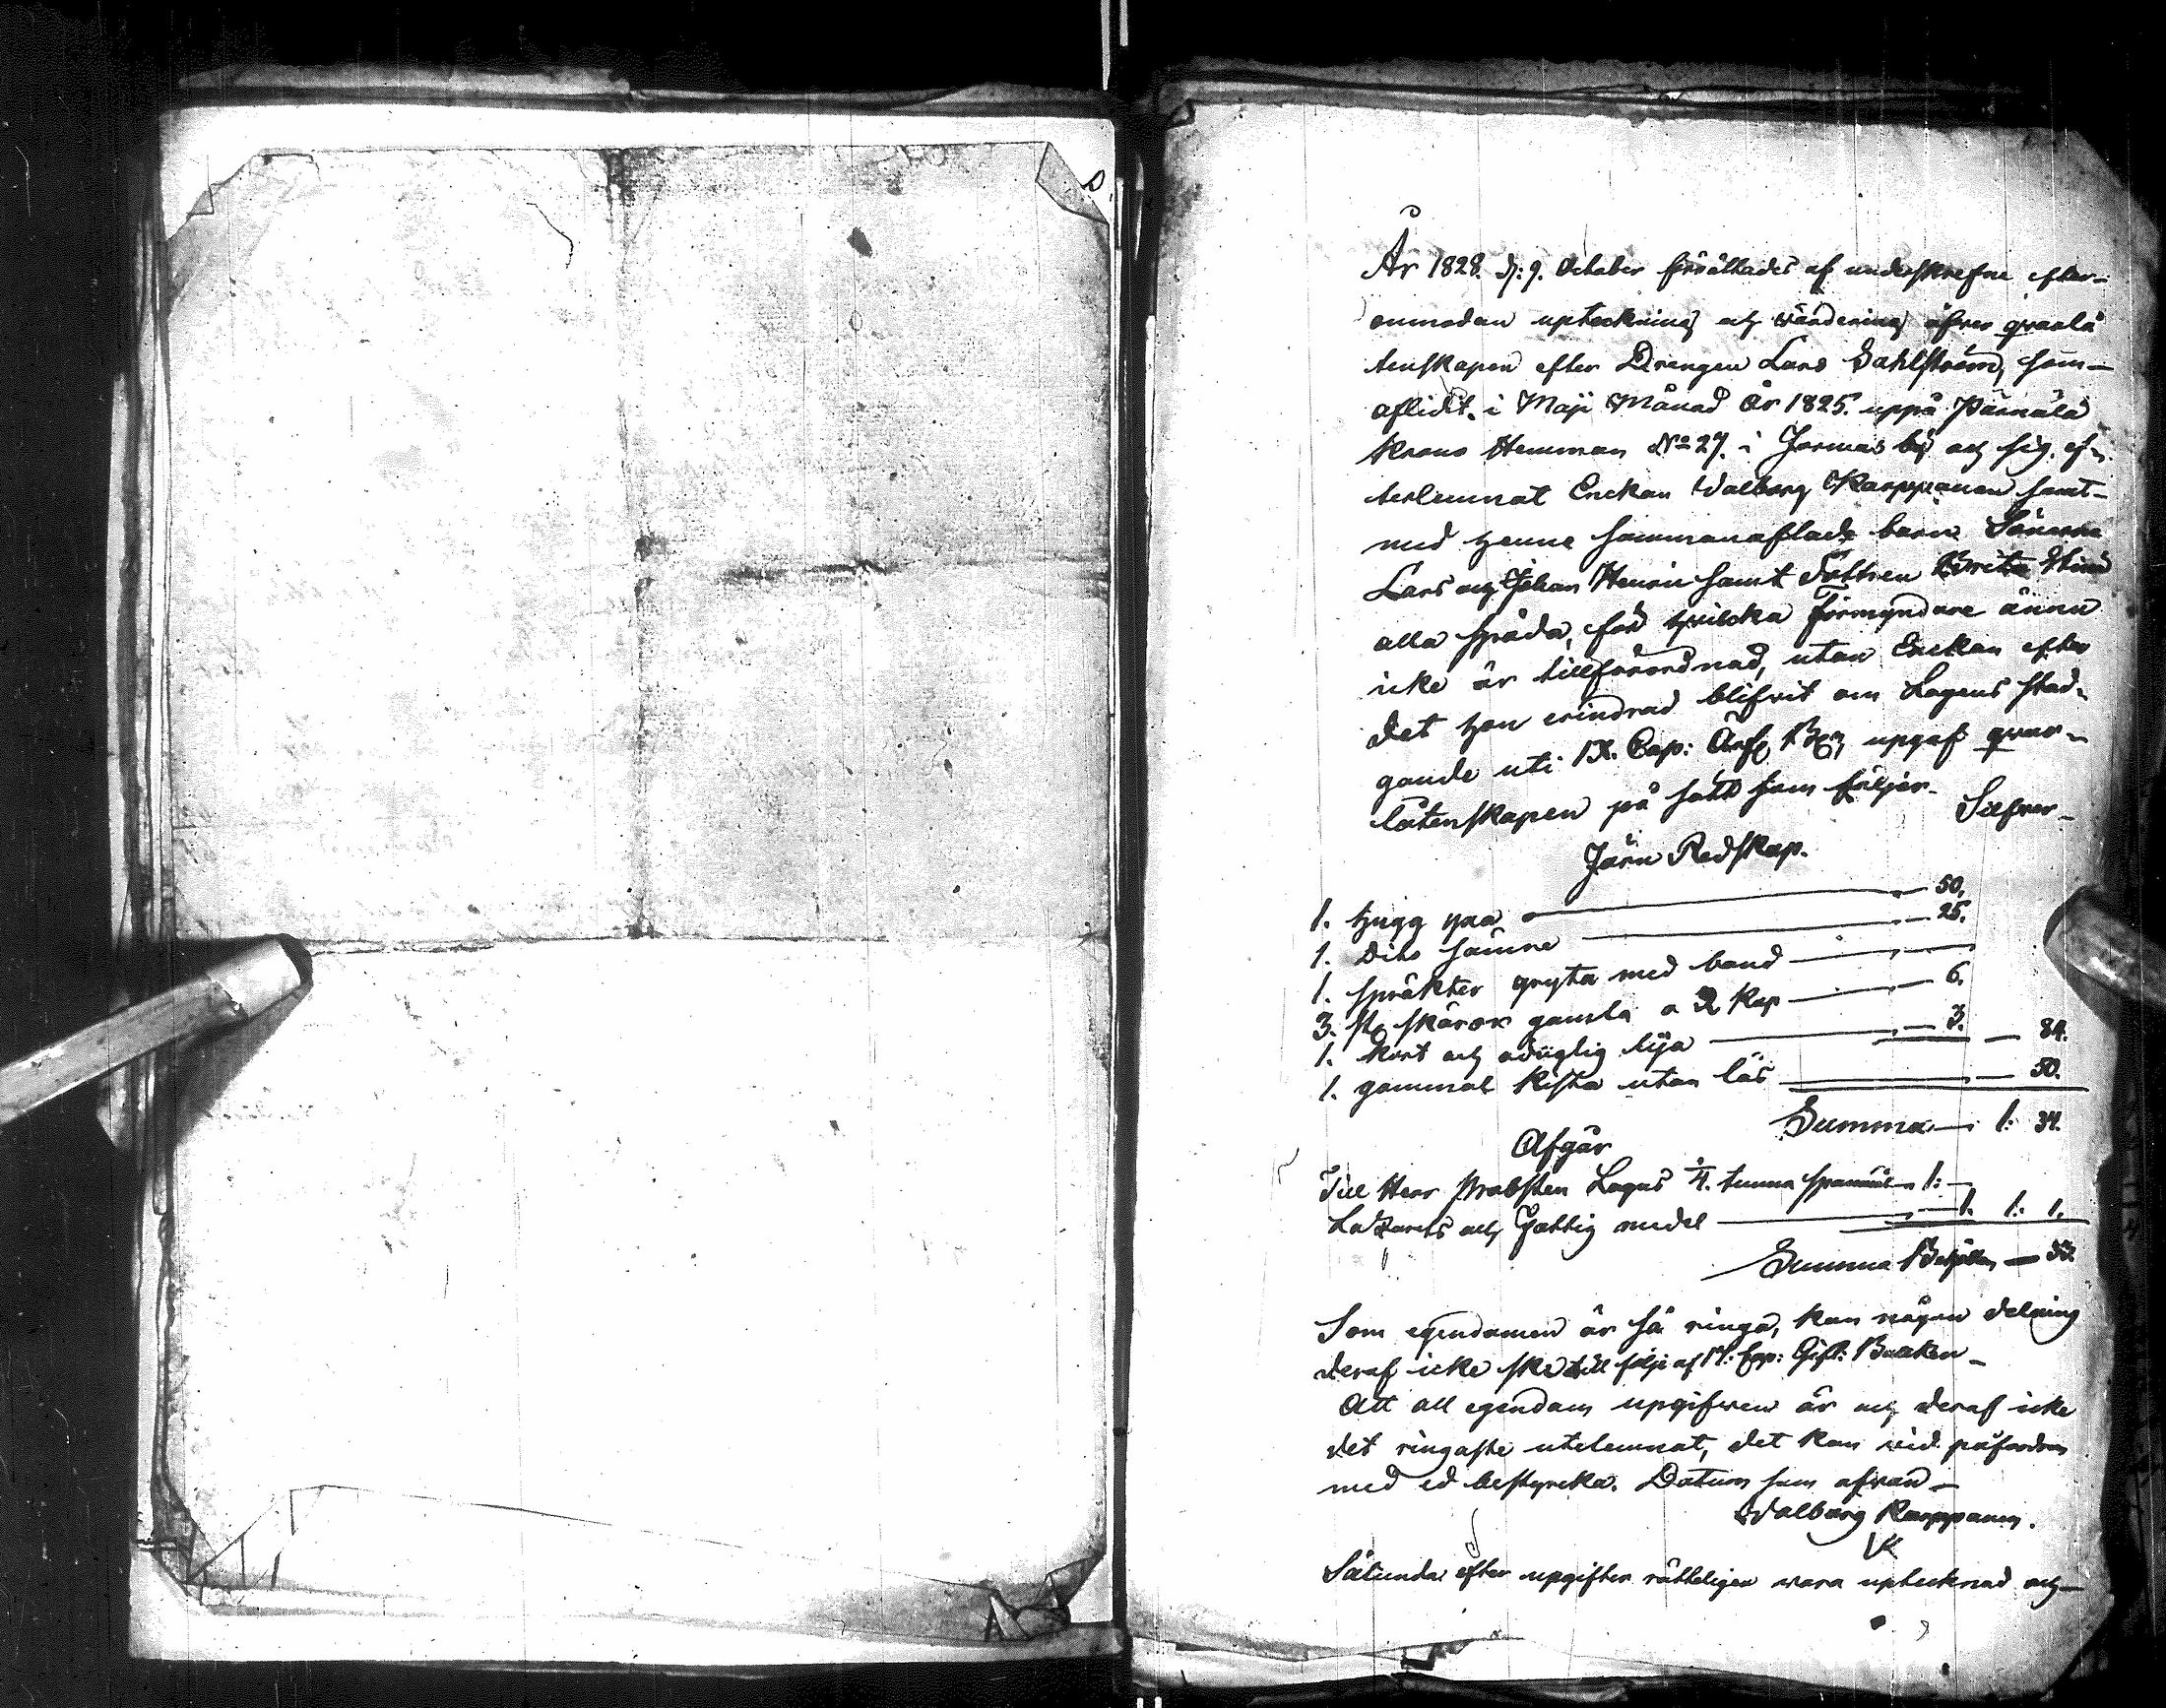 År 1828. d: 9. October förrättades af underskrefne efter-
omrodan upteckning och värdering öfver qvarlå
tenskapen efter Drengen Lars Sahlström, som
aflidit i Maji Månad År 1825. uppå Pärnälä
Krono Hemman No 27. i Jormas by och sig ef-
terlemnat Enckan Walborg Karppanen samt
med henne sammanaflade barn Sönerna
Lars och Johan Henric samt Dottren Brita Stina
alla späda, för hvilcka Förmyndare ännu
icke är tillförordnad, utan Enckan efter
det hon erindrad blifvit om Lagens stad-
gande uti IX. Cap: Ärf. B. upgaf qvar-
låtenskapen på sätt som följer.
Silfver
Järn Redskap.
1. hugg yxa — 50.
1. Dito sämre — 25.
1. spräkter gryta med band —
3. st skäror gamla a 2 Kop — 6.
1. Kort och oduglig lija — 3. — 84.
1. gammal Kista utan lås — 50.
Summa — 1: 34.
Afgår
Till Herr Probsten Lagus 1/4. tunna spannmål 1: —
Lazarets och Fattig medel — 1. 1: 1.
Summa Behållen — 33.
Som egendomen är så ringa, kan någon delning
deraf icke ske till följe af 17: Cap: Gift: Balken
Att all egendom upgifven är och deraf icke
det ringaste utelemnat, det kan vid påfordran
med ed bestyrcka. Datum som ofvan
Walborg Karppanen.
Sålunda efter upgiften rätteligen vara uptecknad och